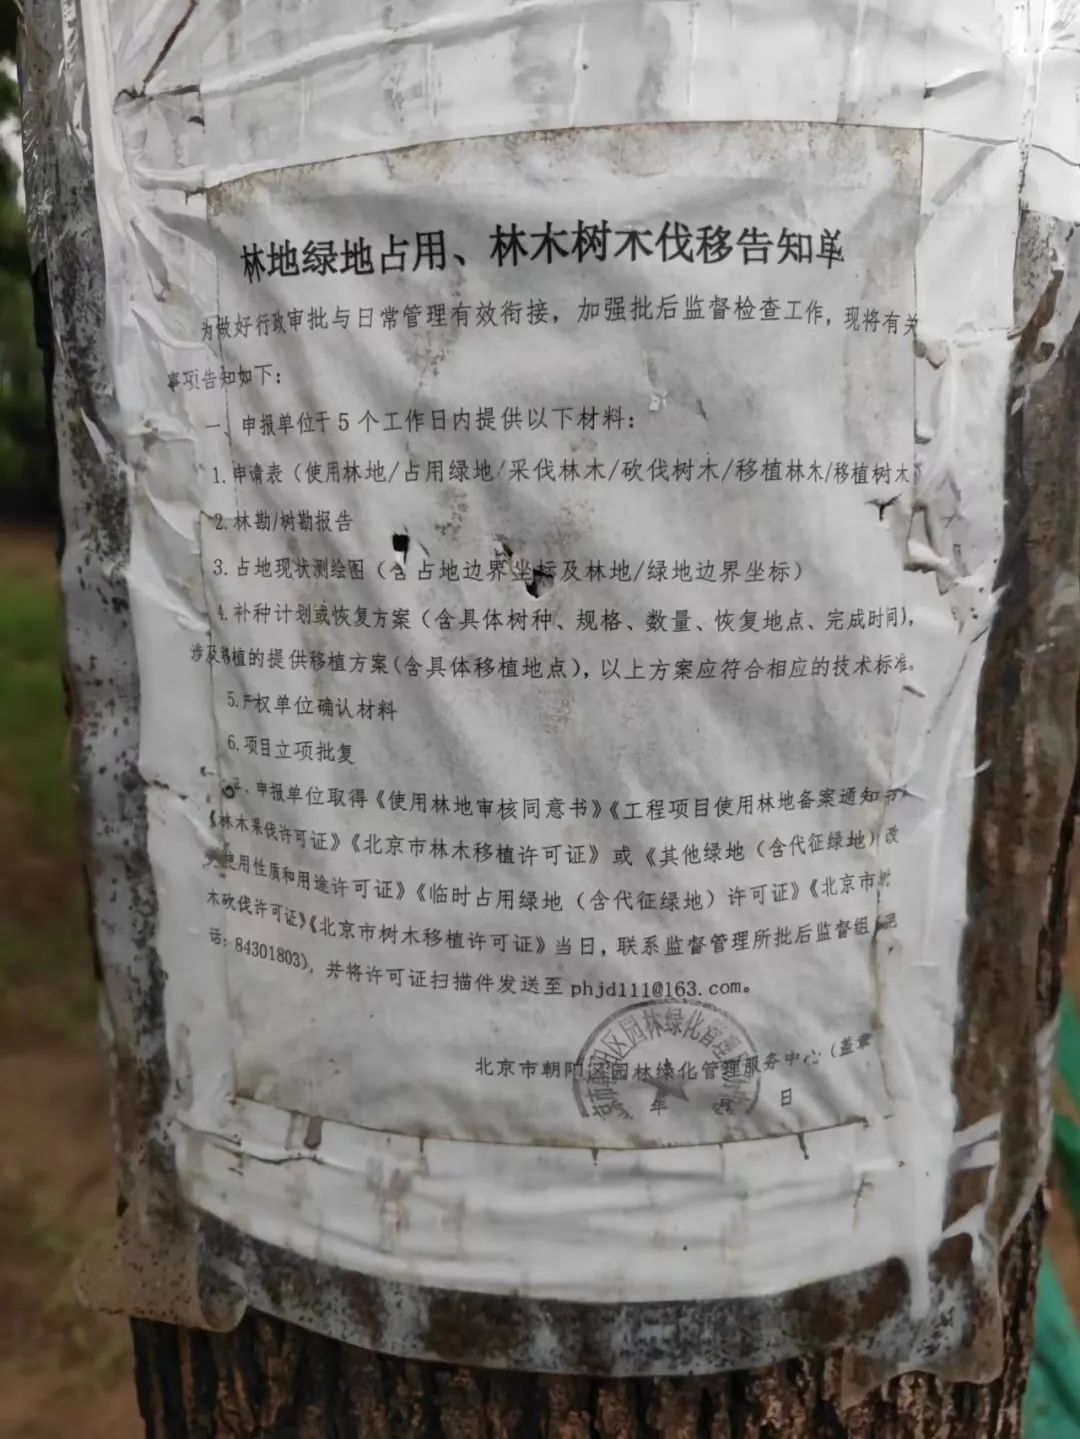 林地绿地占用、林木树木伐移告知单
为做好行政审批与日常管理有效衔接，加强批后监督检查工作，现将有关
事项告知如下：
一、申报单位于 5 个工作日内提供以下材料：
1.申请表（使用林地/占用绿地/采伐林木/砍伐树木/移植林木/移植树木
2.林勘/树勘报告
3.占地现状测绘图（含占地边界坐标及林地/绿地边界坐标）
4.补种计划或恢复方案（含具体树种、规格、数量、恢复地点、完成时间），
涉及移植的提供移植方案（含具体移植地点），以上方案应符合相应的技术标准。
5.产权单位确认材料
6.项目立项批复
二、申报单位取得《使用林地审核同意书》《工程项目使用林地备案通知书》
《林木采伐许可证》《北京市林木移植许可证》或《其他绿地（含代征绿地）改
变使用性质和用途许可证》《临时占用绿地（含代征绿地）许可证》《北京市树
木砍伐许可证》《北京市树木移植许可证》当日，联系监督管理所批后监督组（电
话：84301803），并将许可证扫描件发送至 phjd111@163.com。
北京市朝阳区园林绿化管理服务中心（盖章
年 月 日